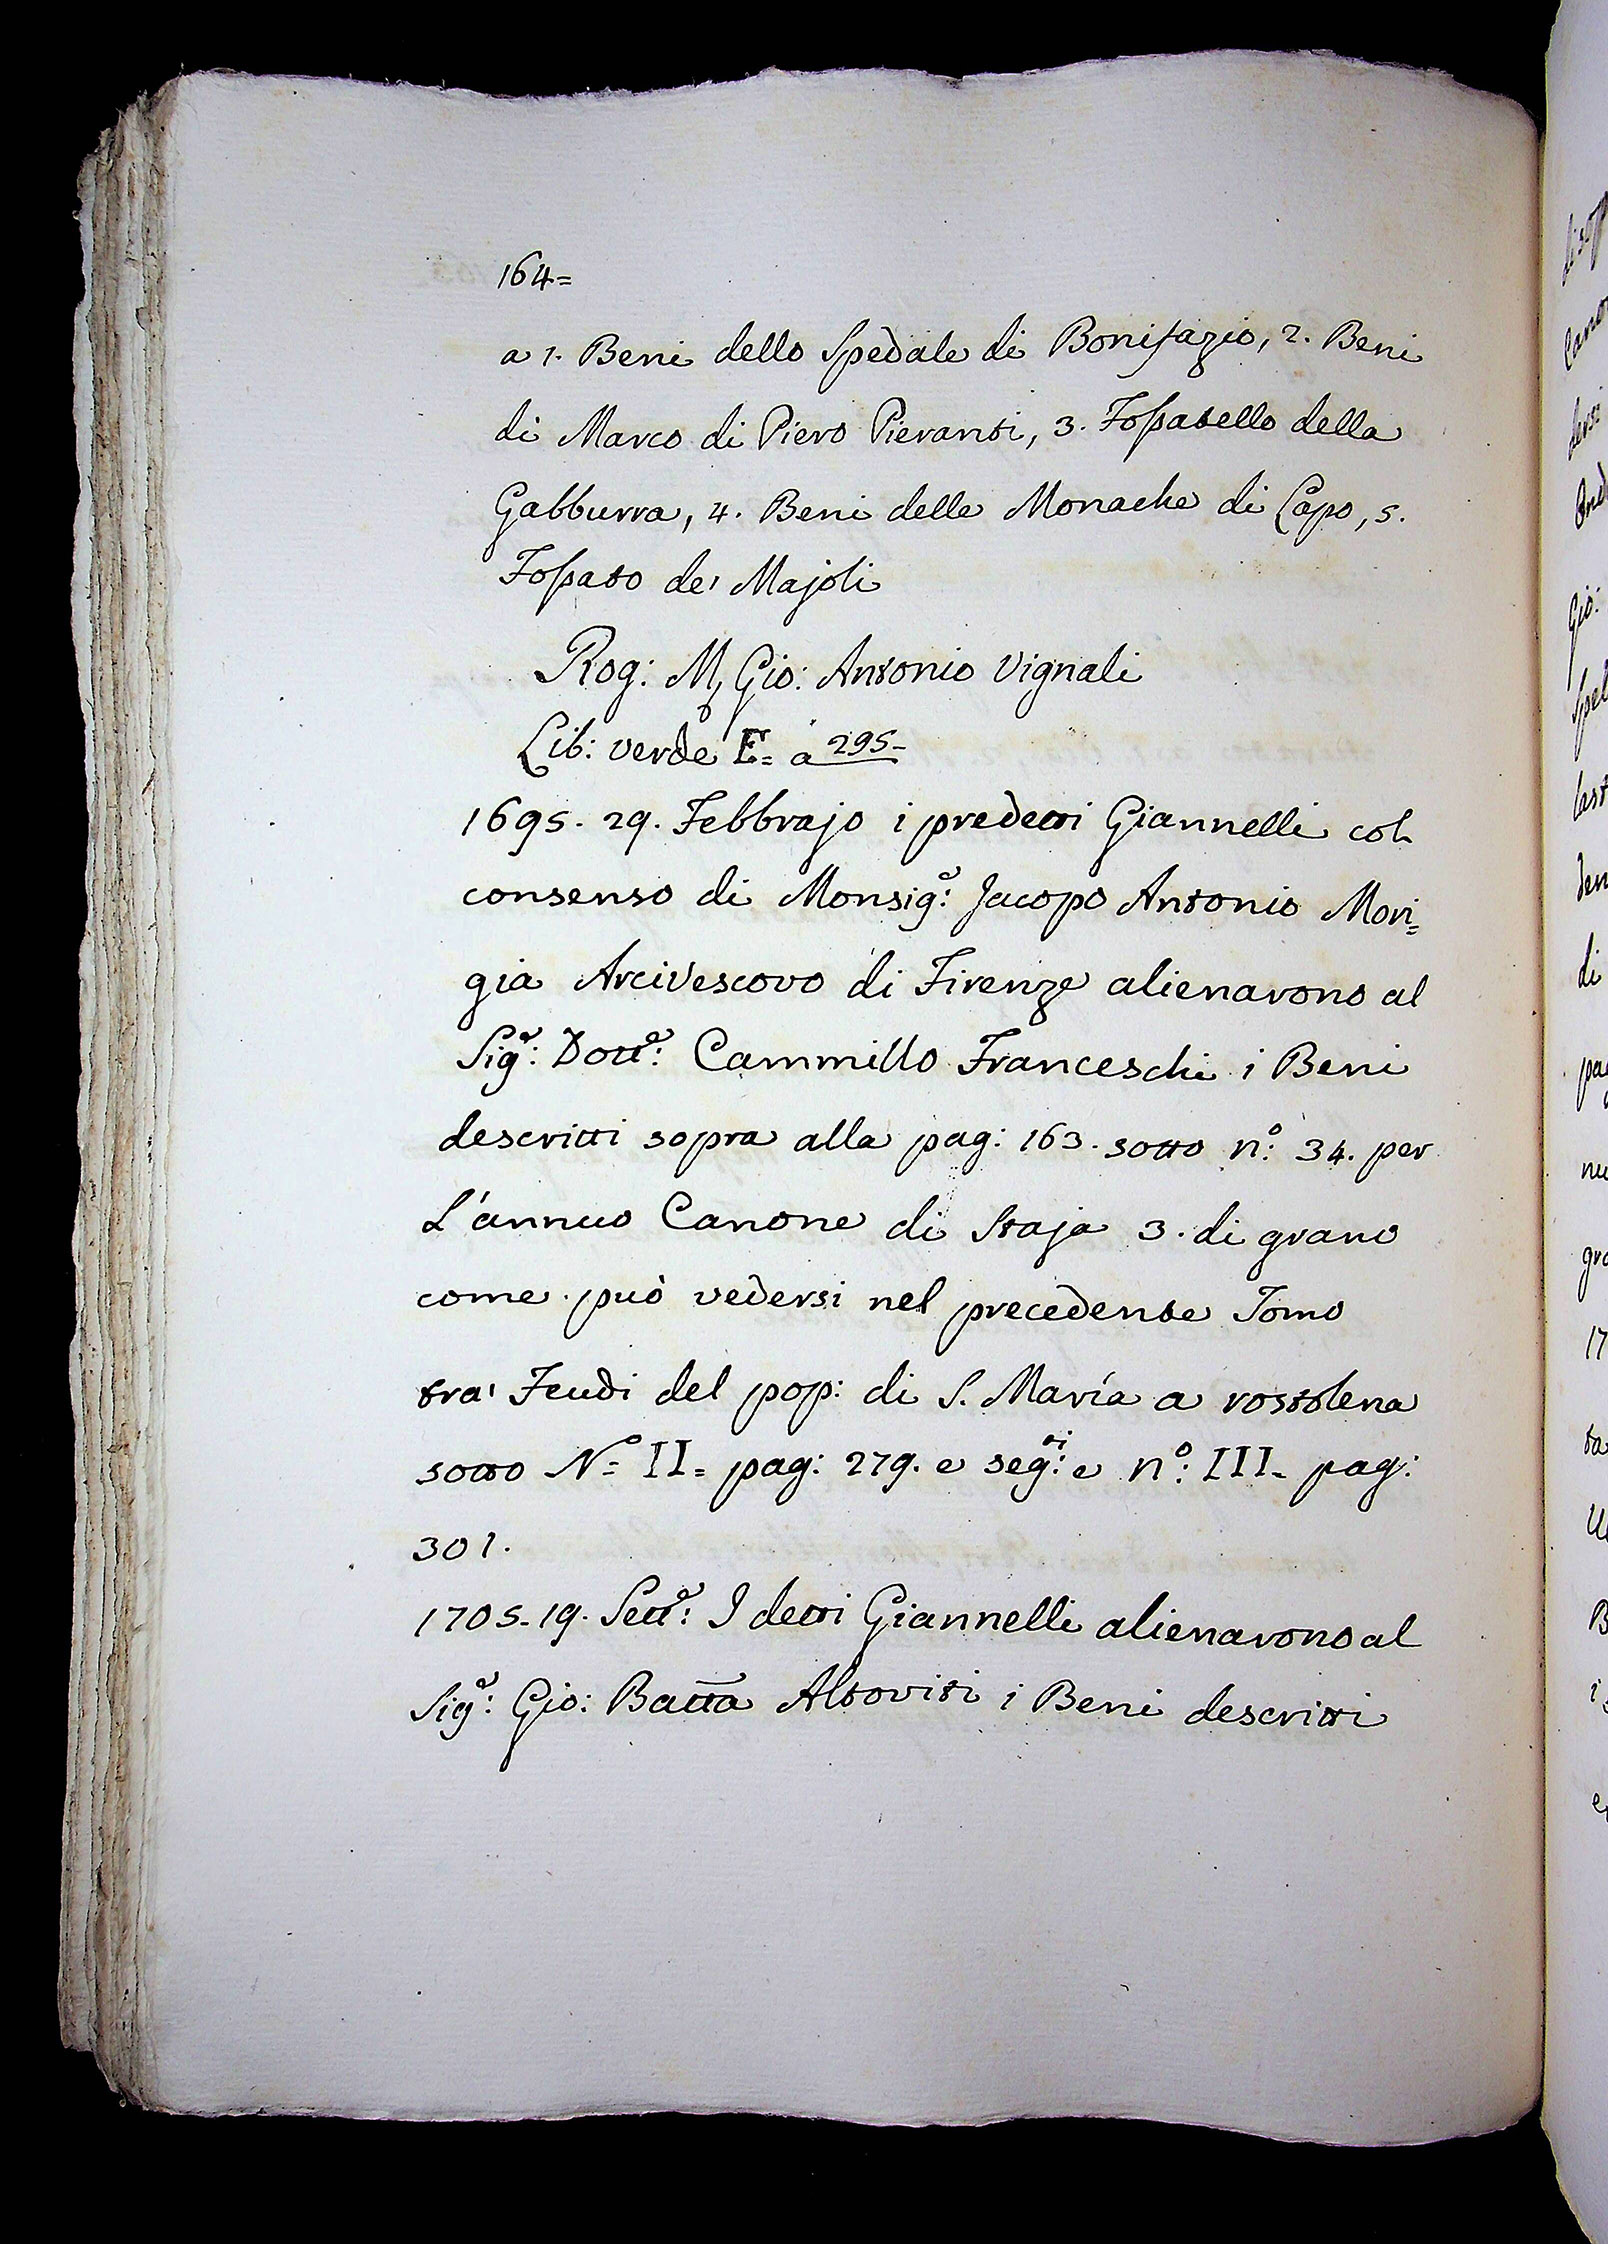 164=
a 1. Beni dello Spedale di Bonifazio, 2. Beni
di Marco di Piero Pieranti, 3. Fossatello della
Gabburra, 4. Beni delle Monache di Capo, 5.
Fossato de' Majoli
Rog: M, Gio: Antonio Vignali
Lib: verde E= a 295-
1695. 29. Febbrajo i predetti Giannelli col
consenso di Monsig.e: Jacopo Antonio Mori=
gia Arcivescovo di Firenze alienarono al
Sig.e: Dott.e: Cammillo Franceschi i Beni
descritti sopra alla pag: 163. sotto n.o: 34. per
L'annuo Canone di Staja 3. di grano
come può vedersi nel precedente Tomo
tra' Feudi del pop: di S. María a rostolena
sotto N.o= II= pag: 279. e seg.ti: e n.o: III= pag:
301.
1705. 19. Sett.e: I detti Giannelli alienarono al
Sig.e: Gio: Batta Altoviti i Beni descritti